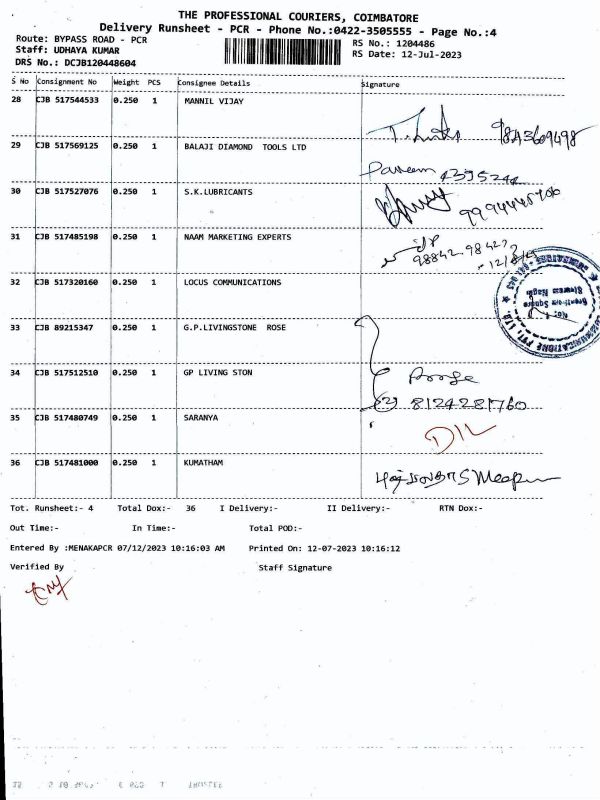 THE PROFESSIONAL COURIERS, COIMBATORE
Delivery Runsheet - PCR - Phone No.:0422-3505555 - Page No.:4
Route: BYPASS ROAD - PCR
Staff: UDHAYA KUMAR
DRS No.: DCJB120448604
RS No.: 1204486
RS Date: 12-Jul-2023
S No Consignment No Weight PCS Consignee Details Signature
28 CJB 517544533 0.250 1 MANNIL VIJAY
29 CJB 517569125 0.250 1 BALAJI DIAMOND TOOLS LTD
30 CJB 517527076 0.250 1 S.K.LUBRICANTS
31 CJB 517485198 0.250 1 NAAM MARKETING EXPERTS
32 CJB 517320160 0.250 1 LOCUS COMMUNICATIONS
33 CJB 89215347 0.250 1 G.P.LIVINGSTONE ROSE
34 CJB 517512510 0.250 1 GP LIVING STON
8124281760
35 CJB 517480749 0.250 1 SARANYA
D/L
36 CJB 517481000 0.250 1 KUMATHAM
Tot. Runsheet:- 4 Total Dox:- 36 I Delivery:- II Delivery:- RTN Dox:-
Out Time:- In Time:- Total POD:-
Entered By :MENAKAPCR 07/12/2023 10:16:03 AM Printed On: 12-07-2023 10:16:12
Verified By Staff Signature